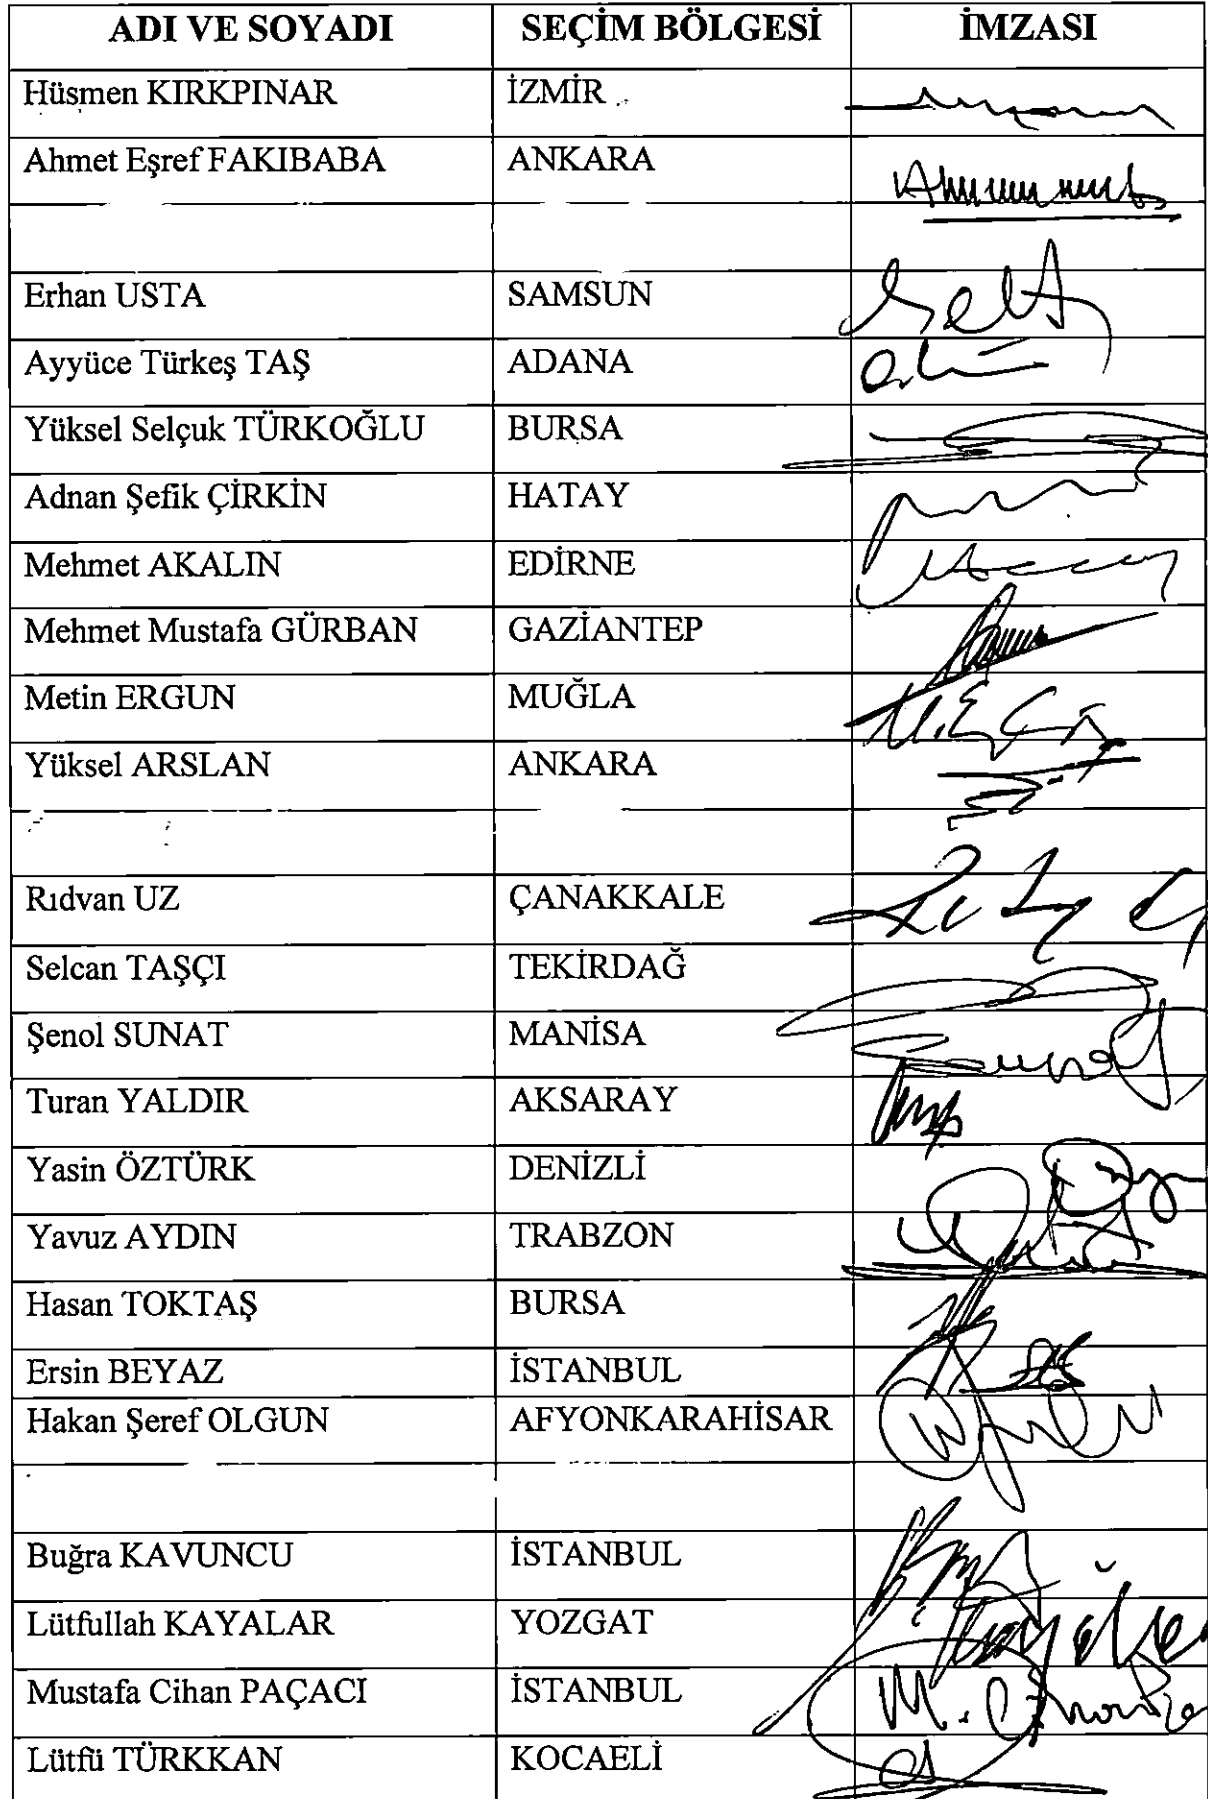 ADI VE SOYADI SEÇİM BÖLGESİ İMZASI
Hüsmen KIRKPINAR İZMİR
Ahmet Eşref FAKIBABA ANKARA
Erhan USTA SAMSUN
Ayyüce Türkeş TAŞ ADANA
Yüksel Selçuk TÜRKOĞLU BURSA
Adnan Şefik ÇİRKİN HATAY
Mehmet AKALIN EDİRNE
Mehmet Mustafa GÜRBAN GAZİANTEP
Metin ERGUN MUĞLA
Yüksel ARSLAN ANKARA
Rıdvan UZ ÇANAKKALE
Selcan TAŞÇI TEKİRDAĞ
Şenol SUNAT MANİSA
Turan YALDIR AKSARAY
Yasin ÖZTÜRK DENİZLİ
Yavuz AYDIN TRABZON
Hasan TOKTAŞ BURSA
Ersin BEYAZ İSTANBUL
Hakan Şeref OLGUN AFYONKARAHİSAR
Buğra KAVUNCU İSTANBUL
Lütfullah KAYALAR YOZGAT
Mustafa Cihan PAÇACI İSTANBUL
Lütfü TÜRKKAN KOCAELİ